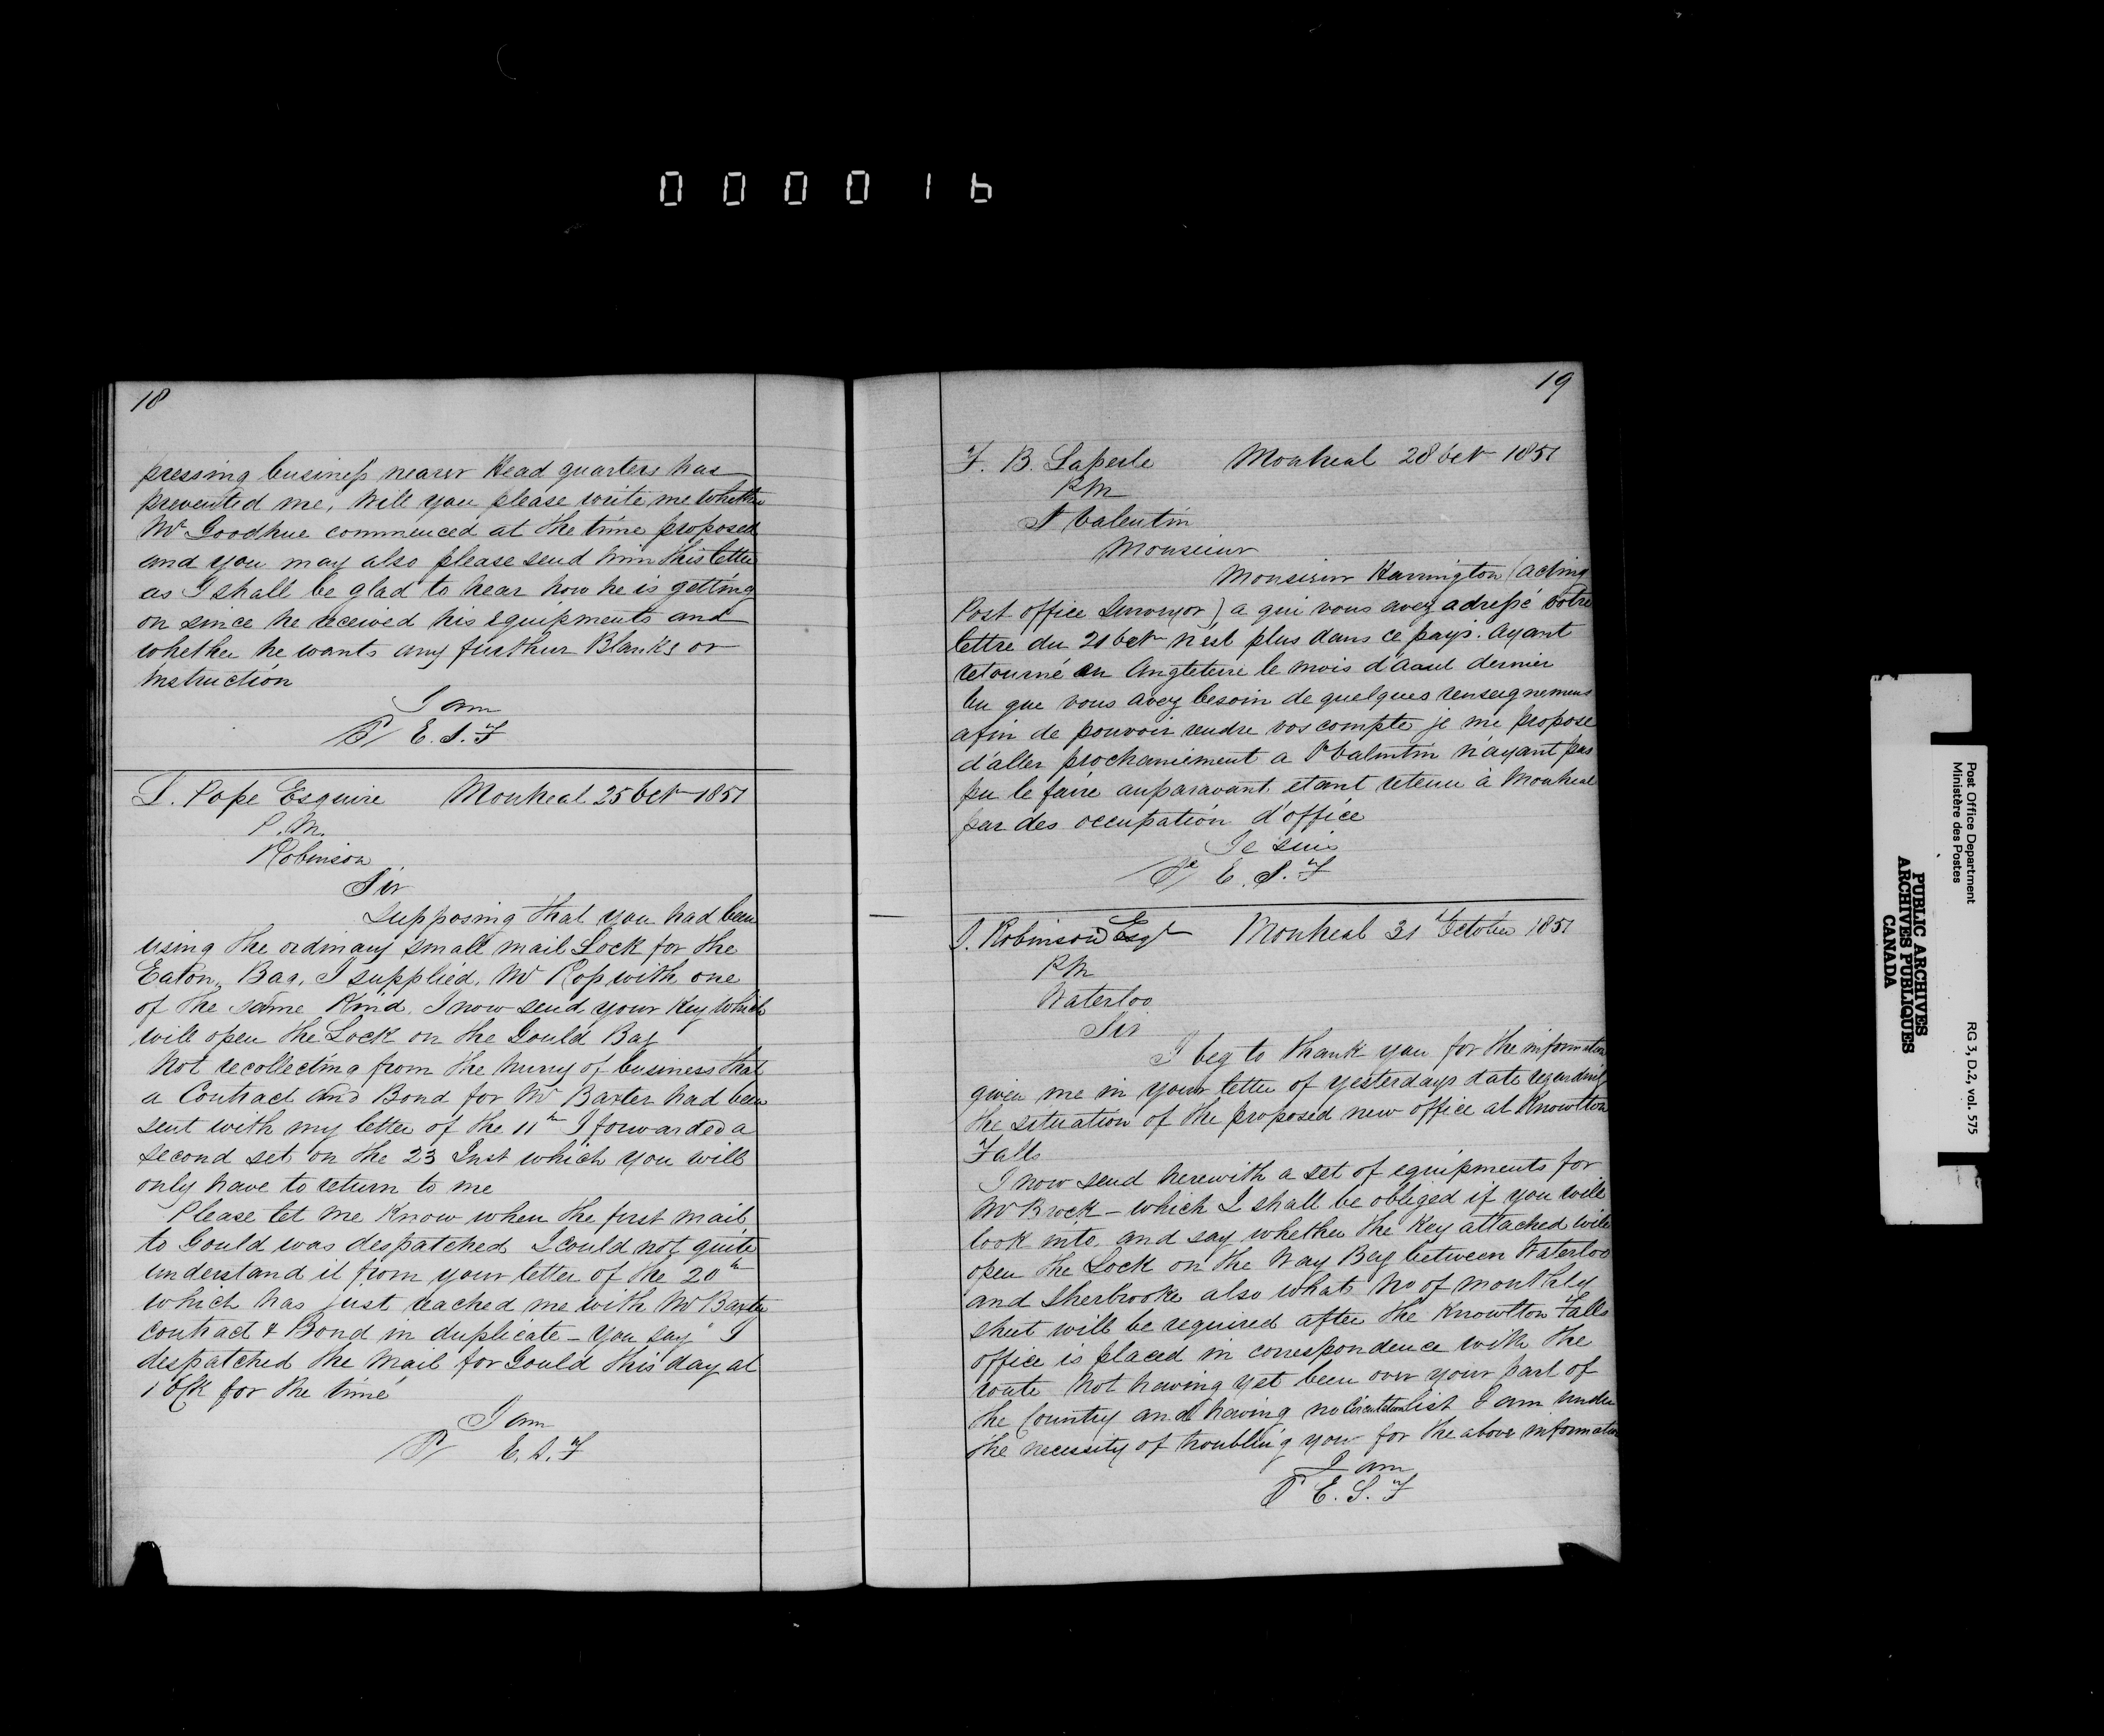 0 0 0 0 1 6
18
pressing business nearer Head quarters has
prevented me, Will you please write me whether
Mr Goodhue commenced at the time proposed
and you may also please send him this letter
as I shall be glad to hear how he is getting
on since he received his equipments and
whether he wants any further Blanks or
instruction
I am
E. S. F
Pope Esquire Montreal 25 Oct 1851
P. M.
Robinson
Sir
Supposing that you had been
using the ordinary small mail Lock for the
Eaton Bag, I supplied Mr Rop with one
of the same Kind. I now send your Key which
will open the Lock on the Gould Bag
Not recollecting from the hurry of business that
a Contract and Bond for Mr Baxter had been
sent with my letter of the 11th I forwarded a
second set on the 23 Inst which you will
only have to return to me
Please let me Know when the first mail
to Gould was despatched I could not quite
understand it from your letter of the 20th
which has just reached me with Mr Baxter
contract & Bond in duplicate – you say "I
despatched the mail for Gould this day at
1 OCK for the time"
I am
E. S. F
19
F. B. Laperle Montreal 28 Oct 1851
PM
St Valentin
Monsieur
Monsieur Harrington (acting
Post office Surveyor) a qui vous avez adressé votre
lettre du 21 Oct n'est plus dans ce pays. ayant
retourné en Angleterre le mois d'Aout dernier
Vu que vous avez besoin de quelques renseignemens
afin de pouvoir rendre vos compte je me propose
d'aller prochainement a St Valentin n'ayant pas
pu le faire auparavant etant retenu à Montreal
par des occupation d'office
Je suis
E. S. F
Robinson Esqr Montreal 31 October 1851
PM
Waterloo
Sir
I beg to thank you for the information
given me in your letter of yesterdays date regarding
the situation of the proposed new office at Knowlton
Falls
I now send herewith a set of equipments for
Mr Brock – which I shall be obliged if you will
look into and say whether the Key attached will
open the Lock on the Way Bag between Waterloo
and Sherbrooke also what No of monthly
sheet will be required after the Knowlton Falls
office is placed in correspondence with the
route Not having yet been over your part of
the Country and having no Circulation list I am under
the necessity of troubling you for the above information
I am
E. S. F
Post Office Department
Ministère des Postes
RG 3, D.2, vol. 575
PUBLIC ARCHIVES
ARCHIVES PUBLIQUES
CANADA